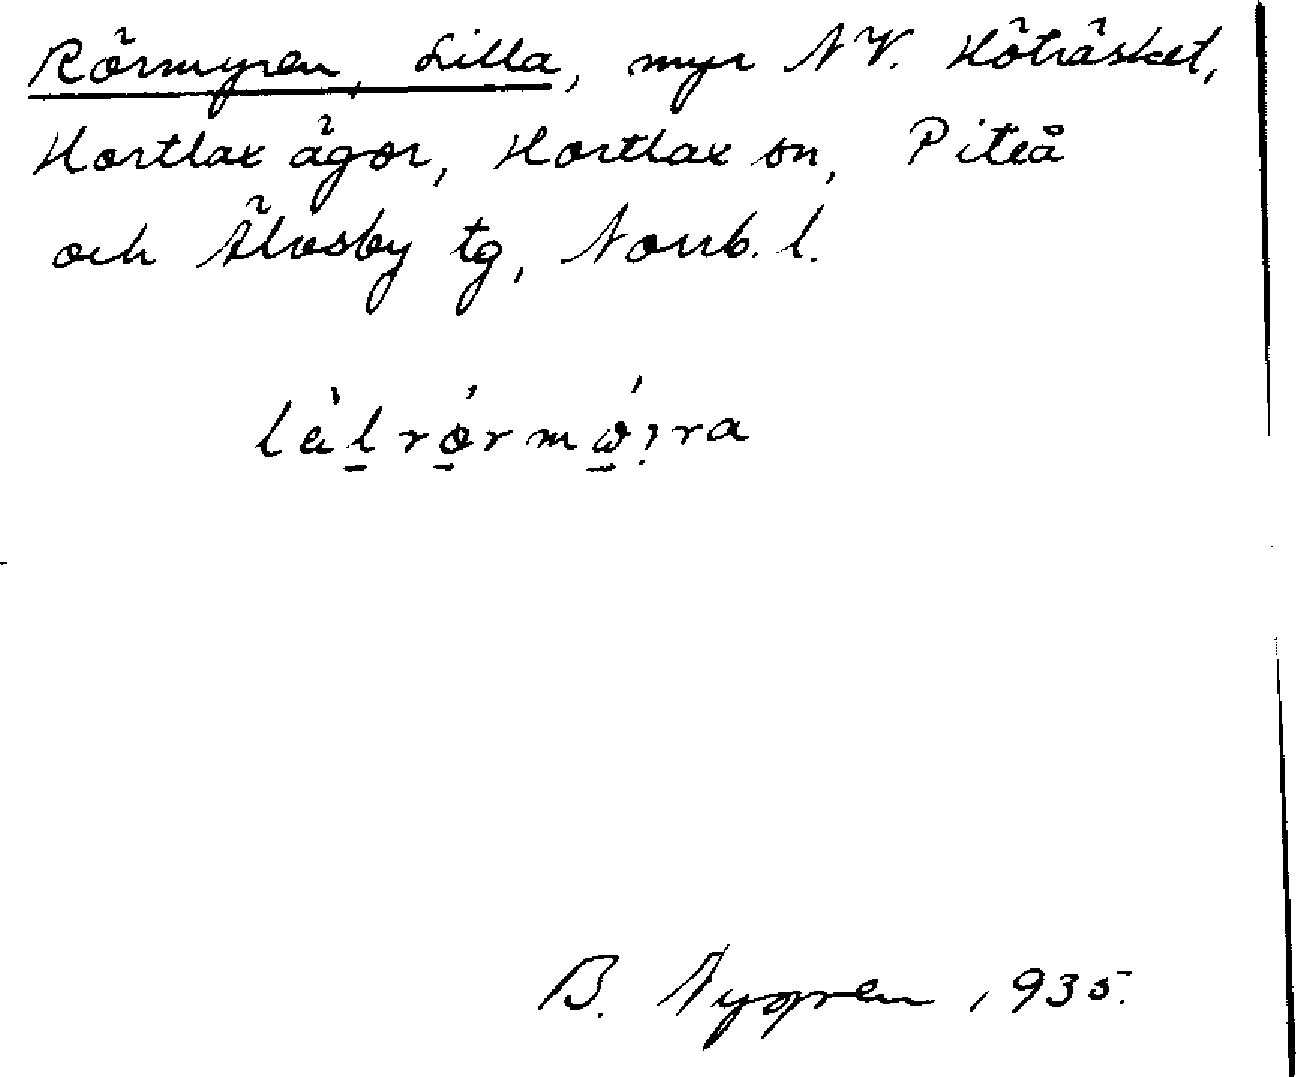 Rörmyren, Lilla, myr NV. Höträsket,
Hortlax ägor, Hortlax sn, Piteå
och Älvsby tg, Norrb. l.
B. Nygren 1935.